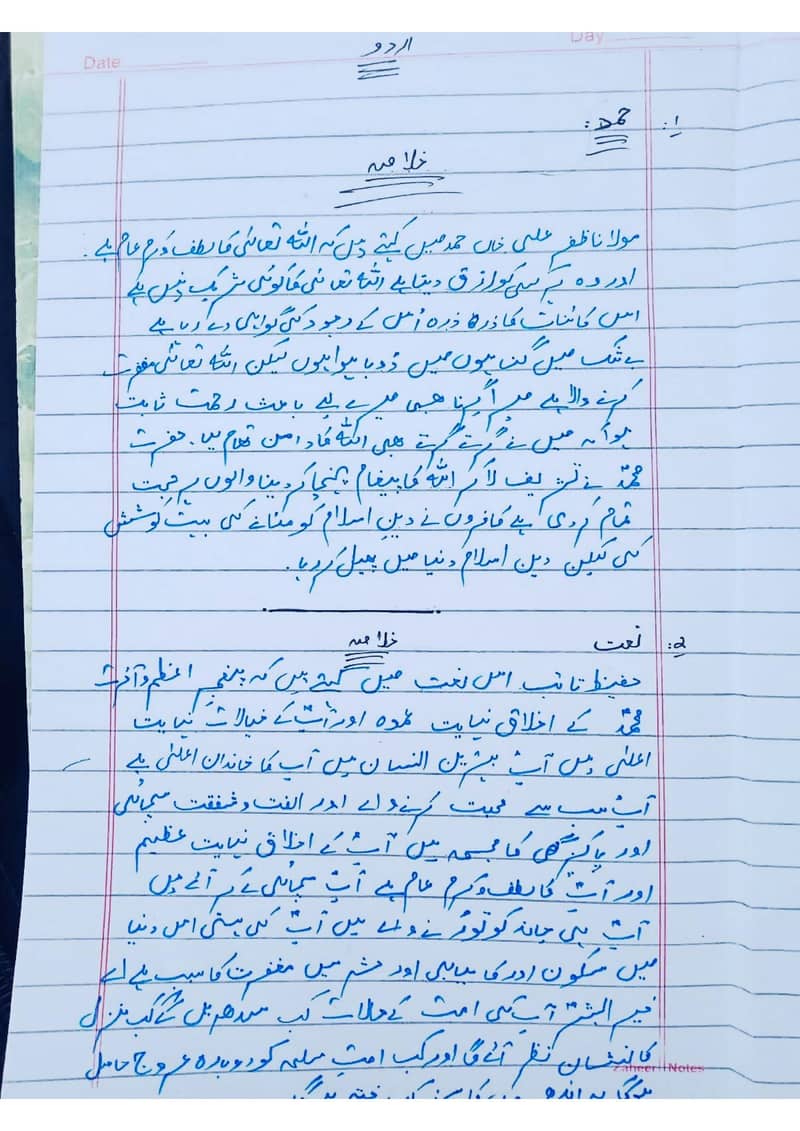 Date
Day
اردو
1: حمد:
خلاصہ
مولانا ظفر علی خاں حمد میں کہتے ہیں کہ اللہ تعالیٰ کا لطف و کرم عام ہے۔
اور وہ ہر کسی کو رزق دیتا ہے اللہ تعالیٰ کا کوئی شریک نہیں ہے
اس کائنات کا ذرہ ذرہ اُس کے وجود کی گواہی دے رہا ہے
بے شک میں گناہوں میں ڈوبا ہوا ہوں لیکن اللہ تعالیٰ مغفرت
کرنے والا ہے میرا گرنا بھی میرے لیے باعث رحمت ثابت
ہوا کہ میں نے گرتے گرتے بھی اللہ کا دامن تھام لیا۔ حضرت
محمدؐ نے تشریف لا کر اللہ کا پیغام پہنچا کر دینا والوں پر حجت
تمام کر دی ہے کافروں نے دینِ اسلام کو مٹانے کی بہت کوشش
کی لیکن دین اسلام دنیا میں پھیل کر رہا۔
2: نعت
خلاصہ
حفیظ تائب اس نعت میں کہتے ہیں کہ پیغمبرِ اعظم و آخرؐ
محمدؐ کے اخلاق نہایت عمدہ اور آپؐ کے خیالات نہایت
اعلیٰ ہیں آپؐ بہترین انسان ہیں آپ کا خاندان اعلیٰ ہے
آپؐ سب سے محبت کرنے والے اور الفت و شفقت سچائی
اور پاکیزگی کا مجسمہ ہیں آپؐ کے اخلاق نہایت عظیم
اور آپؐ کا لطف و کرم عام ہے آپؐ سچائی لے کر آئے ہیں
آپؐ ہی کو توڑنے والے ہیں آپؐ کی ہستی اس دنیا
میں سکون اور کامیابی اور حشر میں مغفرت کا سبب ہے اے
خیر البشرؐ آپؐ کی امت کے حالات کب سدھریں گے کب منزل
کا نشان نظر آئے گا اور کب امتِ مسلمہ کو دوبارہ عروج حاصل
Zaheer Notes